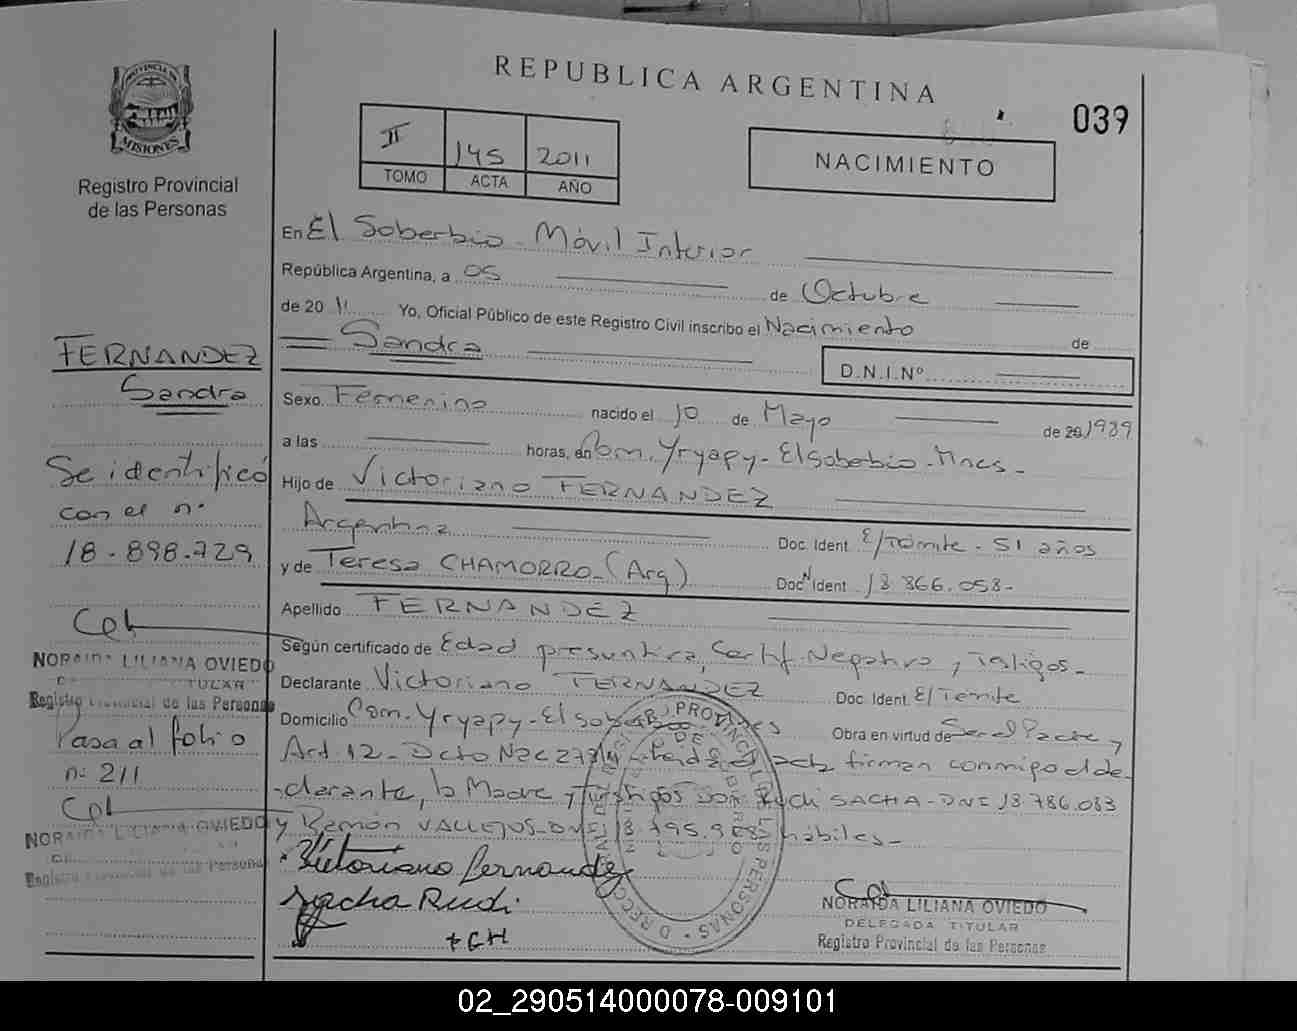 REPUBLICA ARGENTINA
039
PROVINCIA DE MISIONES
Registro Provincial
de las Personas
II 145 2011
TOMO ACTA AÑO
NACIMIENTO
En El Soberbio - Móvil Interior
República Argentina, a 05 de Octubre
de 20 11 Yo, Oficial Público de este Registro Civil inscribo el Nacimiento de
Sandra
D.N.I.Nº
Sexo Femenino nacido el 10 de Mayo de 20 1989
a las horas, en Com. Yryapy - El Soberbio - Mnes -
Hijo de Victoriano FERNANDEZ
Argentina Doc. Ident. E/Trámite - 51 años
y de Teresa CHAMORRO - (Arg) Doc. Ident. 18.866.058 -
Apellido FERNANDEZ
Según certificado de Edad presuntiva, Certif. Negativo y Testigos -
Declarante Victoriano FERNANDEZ Doc. Ident. E/Trámite
Domicilio Com. Yryapy - El Soberbio Mnes Obra en virtud de Ser el Padre y
Art. 12 - Dcto Nac 278/ acta firman conmigo el de-
clarante, la Madre y Testigos son Rudi SACHA - DNI 18.786.083
y Ramón VALLEJOS - DNI 18.795.968 hábiles -
Victoriano Fernandez
Sacha Rudi
+ CH
NORAIDA LILIANA OVIEDO
DELEGADA TITULAR
Registro Provincial de las Personas
FERNANDEZ
Sandra
Se identificó
con el nº
18.898.729
NORAIDA LILIANA OVIEDO
TITULAR
Registro Provincial de las Personas
Pasa al folio
nº 211
NORAIDA LILIANA OVIEDO
Registro Provincial de las Personas
02_290514000078-009101